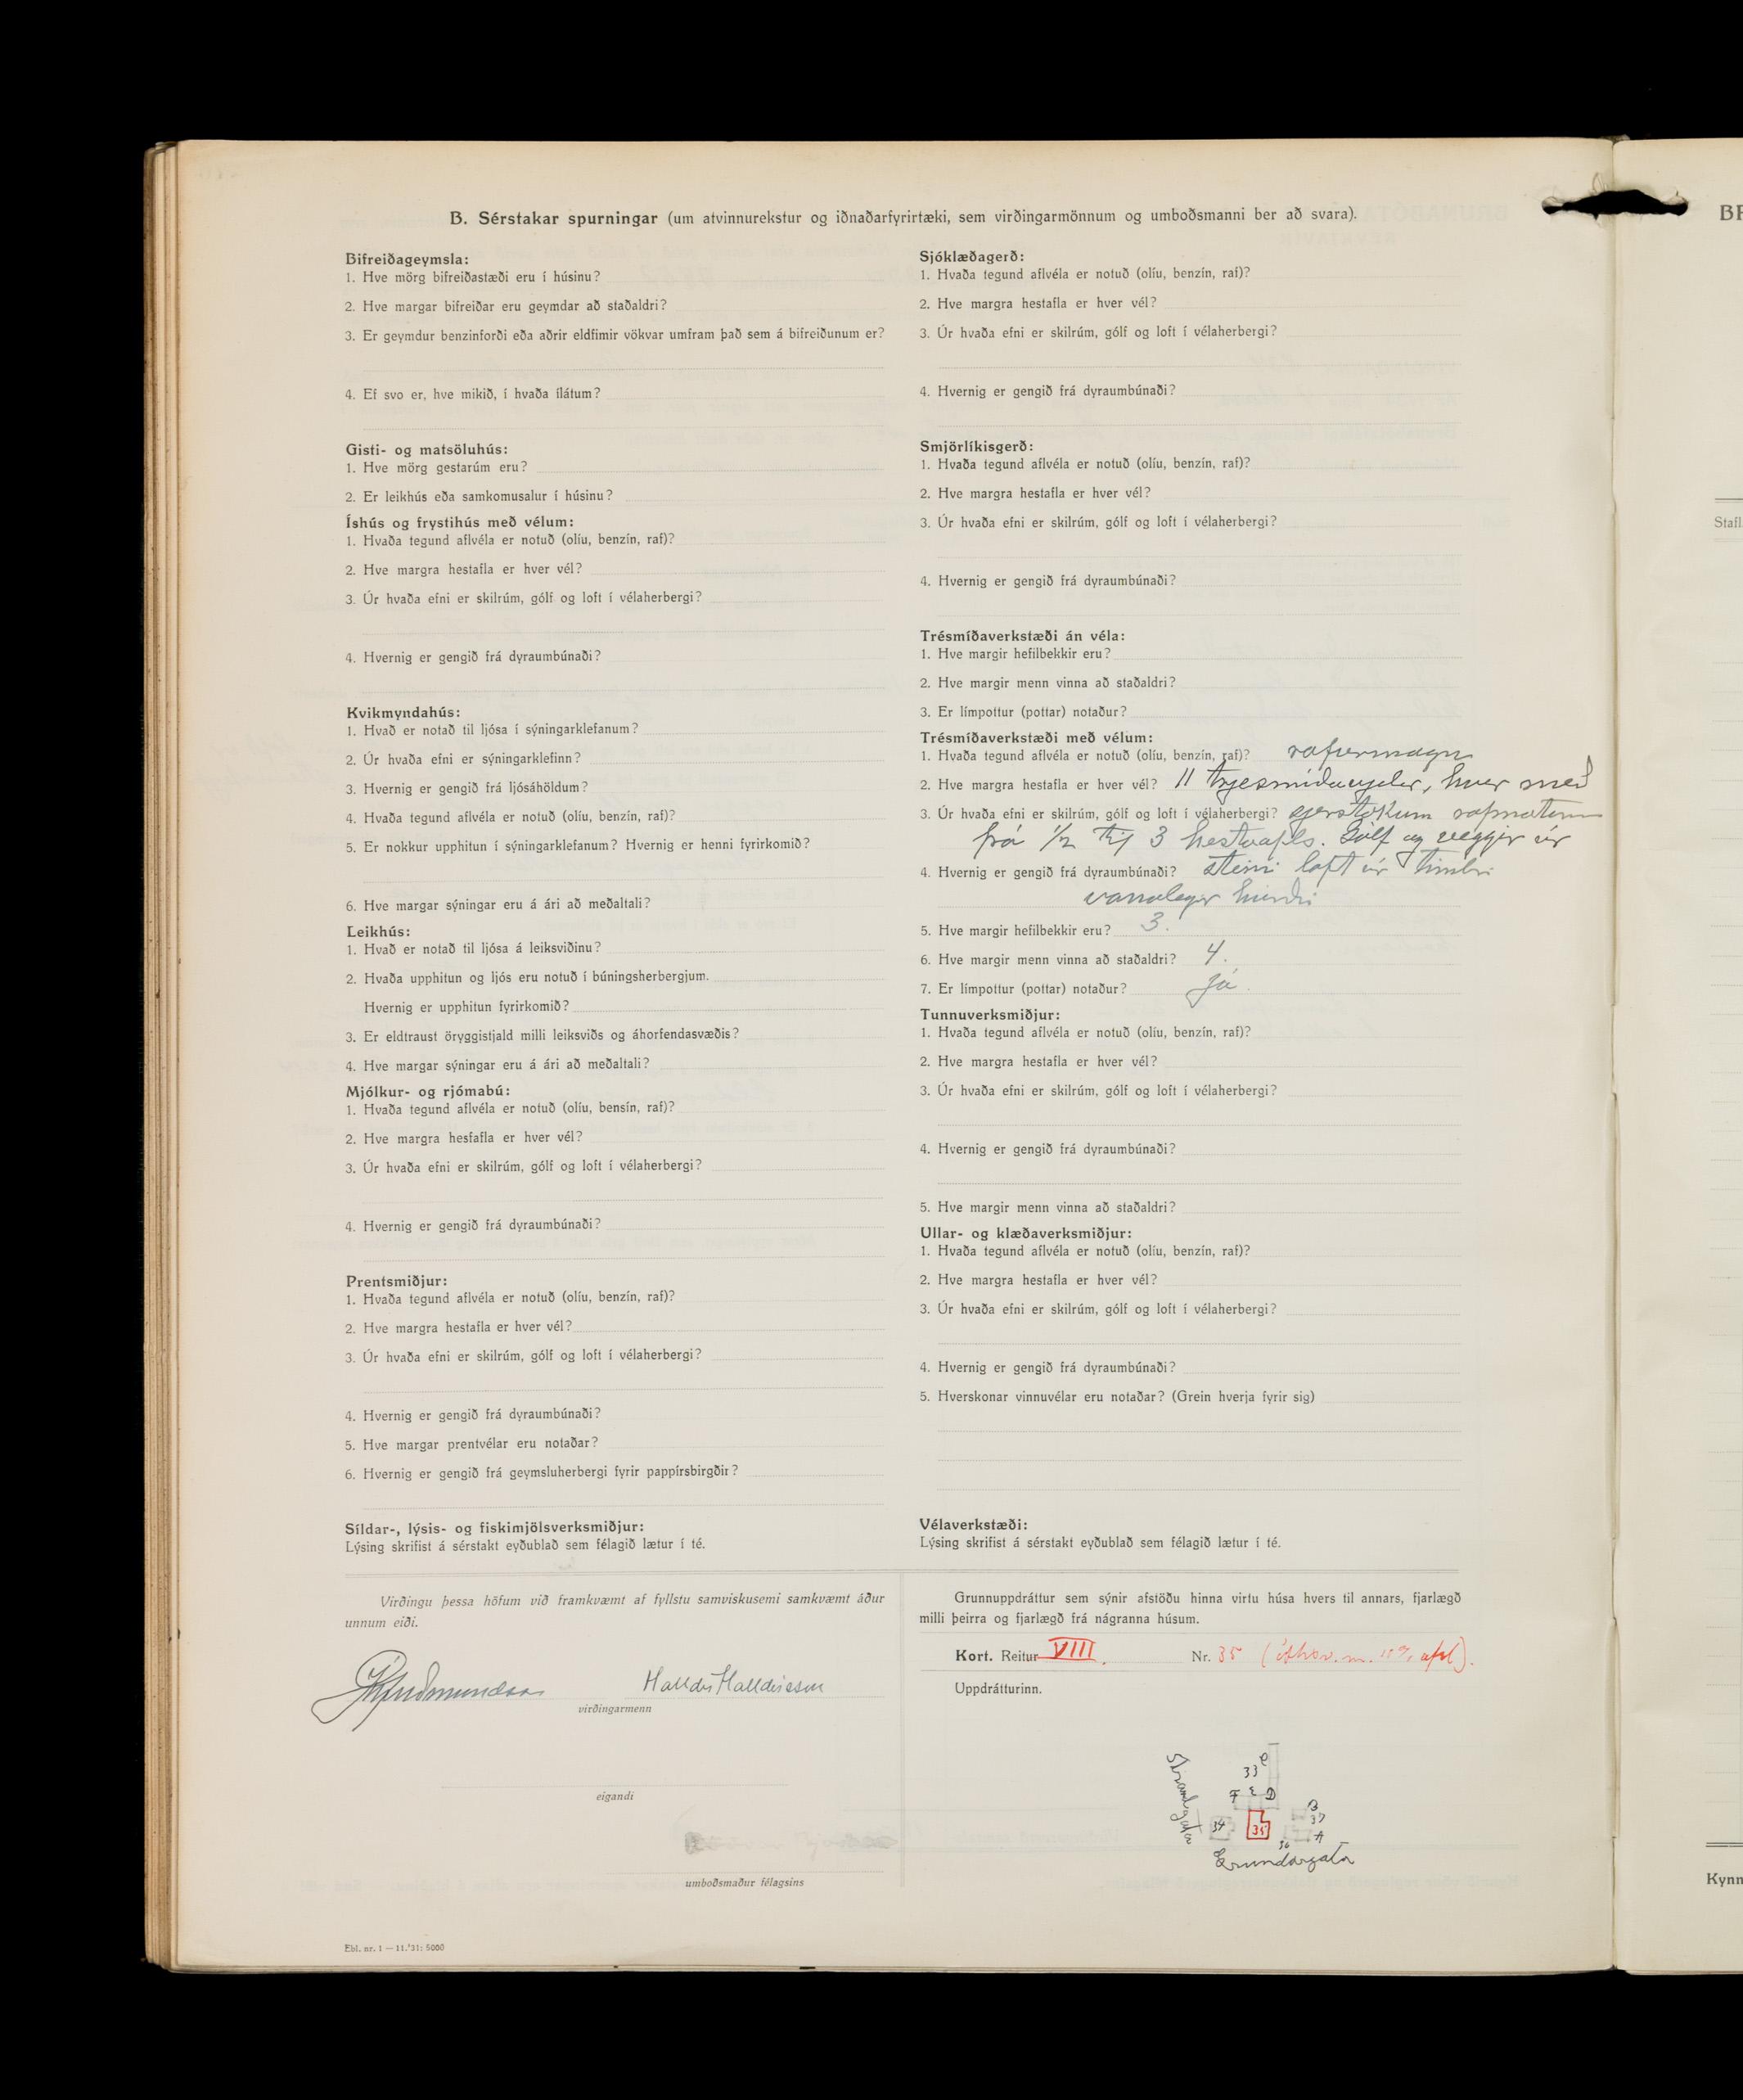 B. Sérstakar spurningar (um atvinnurekstur og iðnaðarfyrirtæki, sem virðingarmönnum og umboðsmanni ber að svara).
Bifreiðageymsla:
1. Hve mörg bifreiðastæði eru í húsinu?
2. Hve margar bifreiðar eru geymdar að staðaldri?
3. Er geymdur benzinforði eða aðrir eldfimir vökvar umfram það sem á bifreiðunum er?
4. Ef svo er, hve mikið, í hvaða ílátum?
Gisti- og matsöluhús:
1. Hve mörg gestarúm eru?
2. Er leikhús eða samkomusalur í húsinu?
Íshús og frystihús með vélum:
1. Hvaða tegund aflvéla er notuð (olíu, benzín, raf)?
2. Hve margra hestafla er hver vél?
3. Úr hvaða efni er skilrúm, gólf og loft í vélaherbergi?
4. Hvernig er gengið frá dyraumbúnaði?
Kvikmyndahús:
1. Hvað er notað til ljósa í sýningarklefanum?
2. Úr hvaða efni er sýningarklefinn?
3. Hvernig er gengið frá ljósáhöldum?
4. Hvaða tegund aflvéla er notuð (olíu, benzín, raf)?
5. Er nokkur upphitun í sýningarklefanum? Hvernig er henni fyrirkomið?
6. Hve margar sýningar eru á ári að meðaltali?
Leikhús:
1. Hvað er notað til ljósa á leiksviðinu?
2. Hvaða upphitun og ljós eru notuð í búningsherbergjum.
Hvernig er upphitun fyrirkomið?
3. Er eldtraust öryggistjald milli leiksviðs og áhorfendasvæðis?
4. Hve margar sýningar eru á ári að meðaltali?
Mjólkur- og rjómabú:
1. Hvaða tegund aflvéla er notuð (olíu, bensín, raf)?
2. Hve margra hesfafla er hver vél?
3. Úr hvaða efni er skilrúm, gólf og loft í vélaherbergi?
4. Hvernig er gengið frá dyraumbúnaði?
Prentsmiðjur:
1. Hvaða tegund aflvéla er notuð (olíu, benzín, raf)?
2. Hve margra hestafla er hver vél?
3. Úr hvaða efni er skilrúm, gólf og loft í vélaherbergi?
4. Hvernig er gengið frá dyraumbúnaði?
5. Hve margar prentvélar eru notaðar?
6. Hvernig er gengið frá geymsluherbergi fyrir pappírsbirgðir?
Síldar-, lýsis- og fiskimjölsverksmiðjur:
Lýsing skrifist á sérstakt eyðublað sem félagið lætur í té.
Sjóklæðagerð:
1. Hvaða tegund aflvéla er notuð (olíu, benzín, raf)?
2. Hve margra hestafla er hver vél?
3. Úr hvaða efni er skilrúm, gólf og loft í vélaherbergi?
4. Hvernig er gengið frá dyraumbúnaði?
Smjörlíkisgerð:
1. Hvaða tegund aflvéla er notuð (olíu, benzín, raf)?
2. Hve margra hestafla er hver vél?
3. Úr hvaða efni er skilrúm, gólf og loft í vélaherbergi?
4. Hvernig er gengið frá dyraumbúnaði?
Trésmíðaverkstæði án véla:
1. Hve margir hefilbekkir eru?
2. Hve margir menn vinna að staðaldri?
3. Er límpottur (pottar) notaður?
Trésmíðaverkstæði með vélum:
1. Hvaða tegund aflvéla er notuð (olíu, benzín, raf)? rafurmagn
2. Hve margra hestafla er hver vél? 11 trjesmíðavjelar, hver með
3. Úr hvaða efni er skilrúm, gólf og loft í vélaherbergi? sjerstökum rafmotorum
frá 1/2 til 3 hestafls. Gólf og veggir úr
4. Hvernig er gengið frá dyraumbúnaði? steini loft úr timbri
vanalegar hurðir
5. Hve margir hefilbekkir eru? 3.
6. Hve margir menn vinna að staðaldri? 4.
7. Er límpottur (pottar) notaður? Já.
Tunnuverksmiðjur:
1. Hvaða tegund aflvéla er notuð (olíu, benzín, raf)?
2. Hve margra hestafla er hver vél?
3. Úr hvaða efni er skilrúm, gólf og loft í vélaherbergi?
4. Hvernig er gengið frá dyraumbúnaði?
5. Hve margir menn vinna að staðaldri?
Ullar- og klæðaverksmiðjur:
1. Hvaða tegund aflvéla er notuð (olíu, benzín, raf)?
2. Hve margra hestafla er hver vél?
3. Úr hvaða efni er skilrúm, gólf og loft í vélaherbergi?
4. Hvernig er gengið frá dyraumbúnaði?
5. Hverskonar vinnuvélar eru notaðar? (Grein hverja fyrir sig)
Vélaverkstæði:
Lýsing skrifist á sérstakt eyðublað sem félagið lætur í té.
Virðingu þessa höfum við framkvæmt af fyllstu samviskusemi samkvæmt áður
unnum eiði.
Guðmundss Halldór Halldórsson
virðingarmenn
eigandi
umboðsmaður félagsins
Ebl. nr. 1 — 11.'31: 5000
Grunnuppdráttur sem sýnir afstöðu hinna virtu húsa hvers til annars, fjarlægð
milli þeirra og fjarlægð frá nágranna húsum.
Kort. Reitur VIII. Nr. 35
Uppdrátturinn.
Strandgata
33 C
F E D
34 35
B
37
36 A
Grundargata
BR
Stafl
Kynn